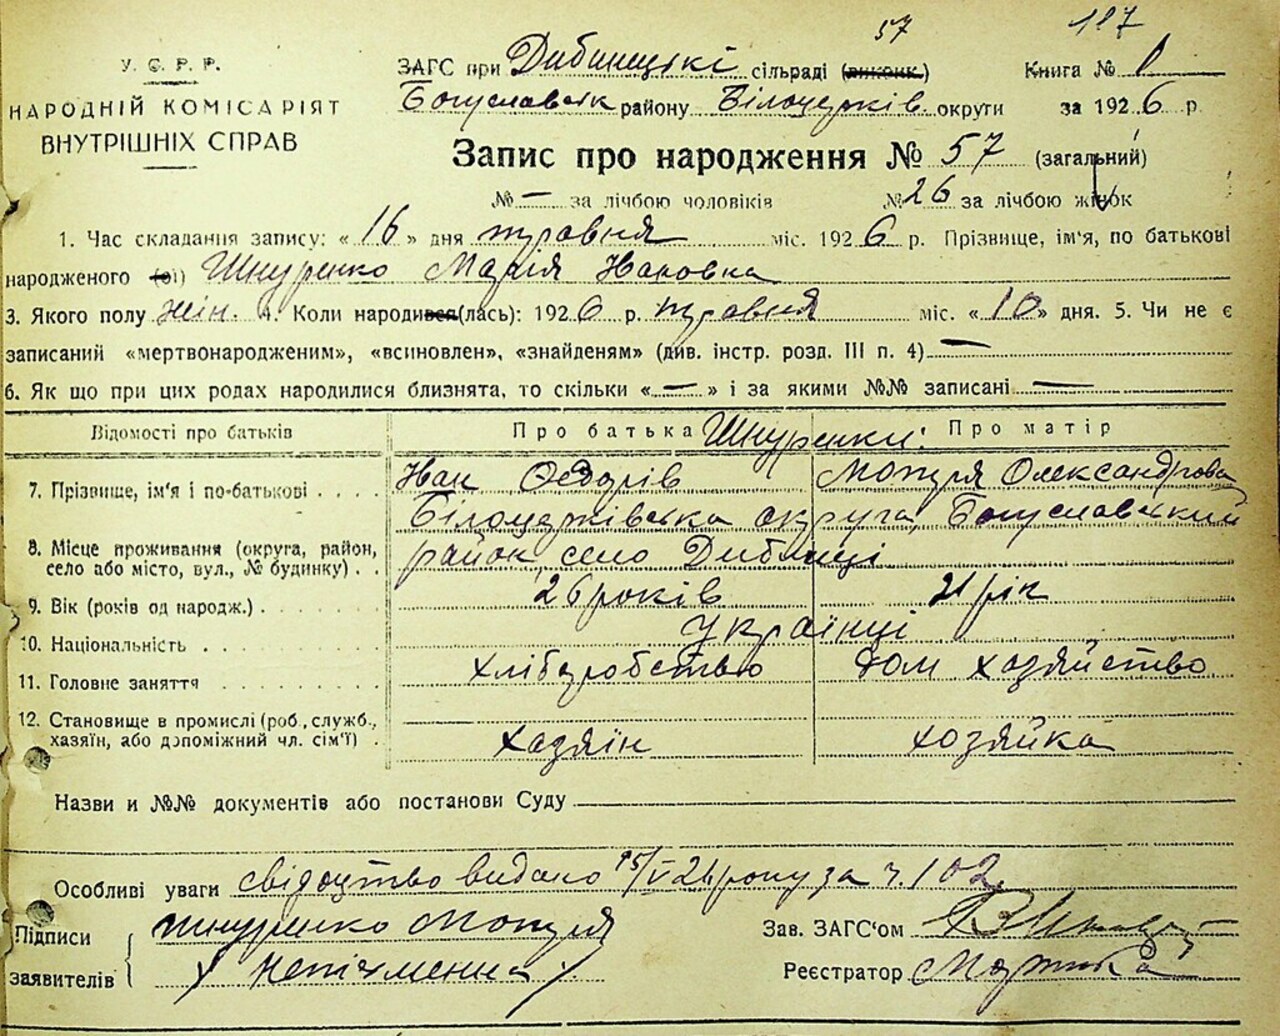 57 187
У. С. Р. Р.
НАРОДНІЙ КОМІСАРІЯТ
ВНУТРІШНІХ СПРАВ
ЗАГС при Дибинецькі сільраді (виконк.) Книга № 1
Богуславськ району Білоцерків. округи за 1926 р.
Запис про народження № 57 (загальний)
№ — за лічбою чоловіків № 26 за лічбою жінок
1. Час складання запису: « 16 » дня травня міс. 1926 р. Прізвище, ім'я, по батькові
народженого (ої) Шнуренко Марія Ивановна
3. Якого полу жін. 4. Коли народився(лась): 1926 р. травня міс. « 10 » дня. 5. Чи не є
записаний «мертвонародженим», «всиновлен», «знайденям» (див. інстр. розд. III п. 4) —
6. Як що при цих родах народилися близнята, то скільки « — » і за якими №№ записані —
Відомості про батьків Про батька Шнуренки: Про матір
7. Прізвище, ім'я і по-батькові . . . . Иван Федорів Мотря Олександрова
8. Місце проживання (округа, район, Білоцерківська округа, Богуславський
село або місто, вул., № будинку) . . район, село Дибинці
9. Вік (років од народж.) . . . . . . . . 26 років 21 рік
10. Національність . . . . . . . . . . Українці
11. Головне заняття . . . . . . . . . . хліборобство дом хозяйство
12. Становище в промислі (роб., служб.,
хазяїн, або допоміжний чл. сім'ї) . хазяїн хозяйка
Назви и №№ документів або постанови Суду —
Особливі уваги свідоцтво видано 15/V 26 року за ч. 102.
Підписи Шнуренко Мотря Зав. ЗАГС'ом
заявителів / неписьменна / Реєстратор